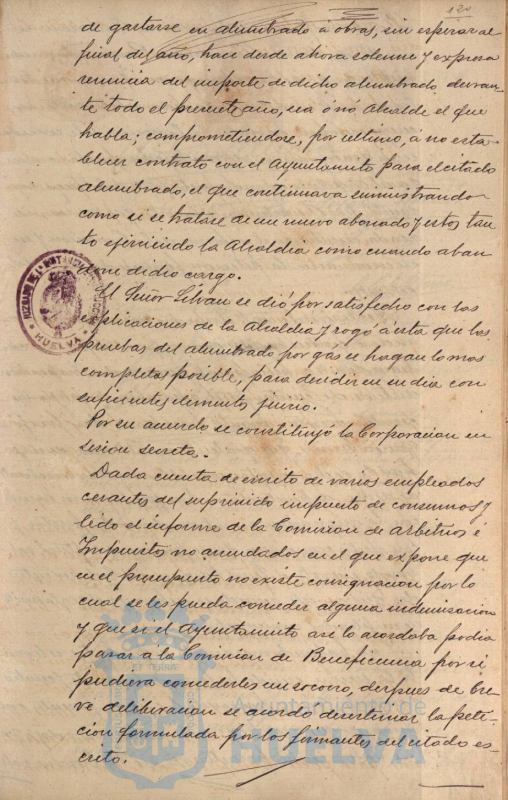 120
de gastarse en alumbrado ú obras, sin esperar al
final del año, hace desde ahora solemne y expresa
renuncia del importe de dicho alumbrado duran-
te todo el presente año, sea ó nó Alcalde el que
habla; comprometiendose, por ultimo, á no esta-
blecer contrato con el Ayuntamito para el citado
alumbrado, el que continuará suministrando
como si se tratase de un nuevo abonado y esto, tan
to ejerciendo la Alcaldia como cuando aban
done dicho cargo.
El Señor Silvan se dió por satisfecho con las
esplicaciones de la Alcaldia y rogó á esta que las
pruebas del alumbrado por gas se hagan lo mas
completas posible, para decidir en su dia con
suficientes elementos juicio.
Por su acuerdo se constituyó la Corporacion en
sesion secreta.
Dada cuenta de escrito de varios empleados
cesantes del suprimido impuesto de consumos y
leido el informe de la Comision de Arbitrios é
Impuestos no arrendados en el que expone que
en el presupuesto no existe consignacion por lo
cual se les pueda conceder alguna indemnizacion
y que si el Ayuntamiento asi lo acordaba podia
pasar á la Comision de Beneficencia por si
pudiera concederles un socorro, despues de bre-
ve deliberacion se acordó desestimar la peti-
cion formulada por los firmantes del citado es-
crito.
HUELVA
Ayuntamiento de
HUELVA